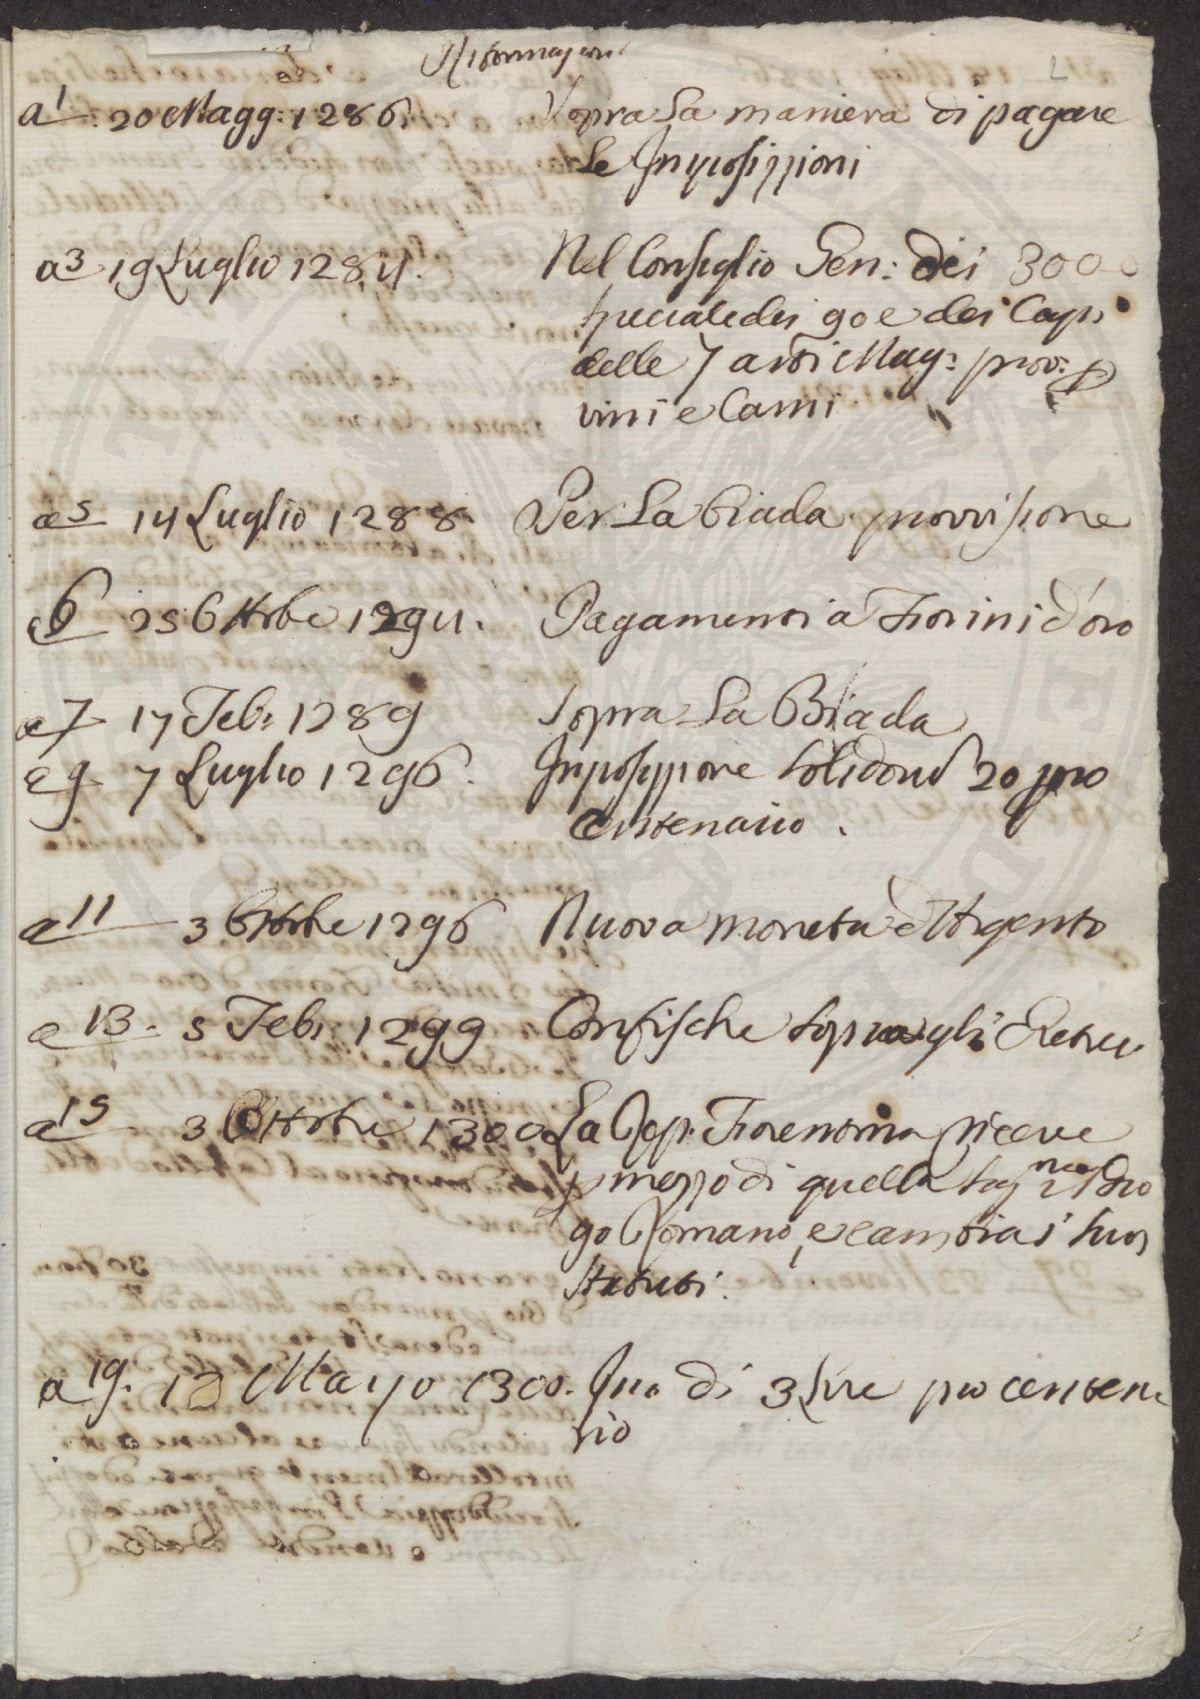 Riformagioni
a 1. 20 Magg: 1286. Sopra La maniera di pagare
Le Imposizzioni
a 3 19 Luglio 1284. Nel Consiglio Gen: dei 300
speciale dei 90 e dei Cap:
delle 7 arti Mag: prov: p
vini e Carni
a 5 14 Luglio 1288. Per La biada provvisione
a 6 25 Ottobe 1294. Pagamenti a Fiorini d'oro
a 7 17 Feb: 1289 Sopra La Biada
a 9 7 Luglio 1296. Imposizzione 20 pro
Centenario.
a 11 3 Ottobe 1296 Nuova moneta d'Argento
a 13. 5 Feb: 1299 Confische sopra gli Eretici
a 15 3 Ottobe 1300 La Rep: Fiorentina riceve
p mezzo di quella
go Romano, e cambia i suoi
statuti.
a 19. 13 Mayo 1300. Imp. di 3 Lire pro centen:
rio